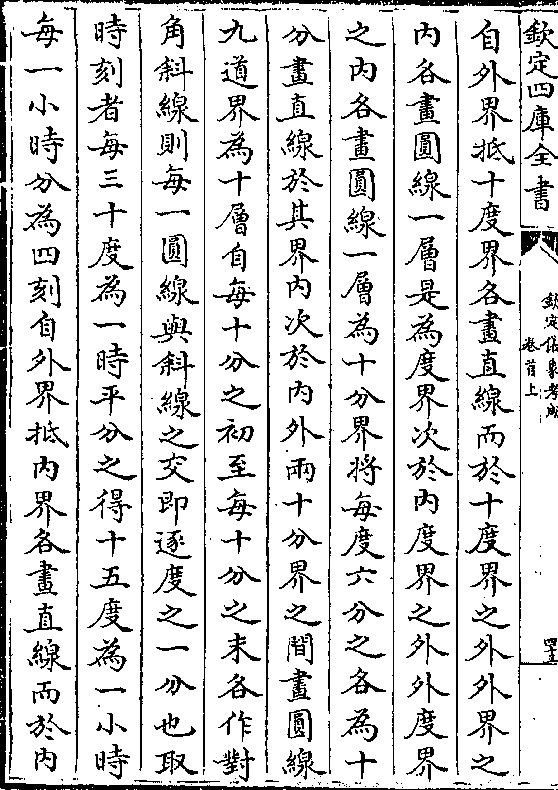 欽定四庫全書
欽定儀象考成
卷首上
自外界抵十度界各畫直線而於十度界之外外界之
内各畫圓線一層是為度界次於内度界之外外度界
之内各畫圓線一層為十分界將每度六分之各為十
分畫直線於其界内次於内外兩十分界之間畫圓線
九道界為十層自每十分之初至每十分之末各作對
角斜線則每一圓線與斜線之交即逐度之一分也取
時刻者每三十度為一時平分之得十五度為一小時
每一小時分為四刻自外界抵内界各畫直線而於内